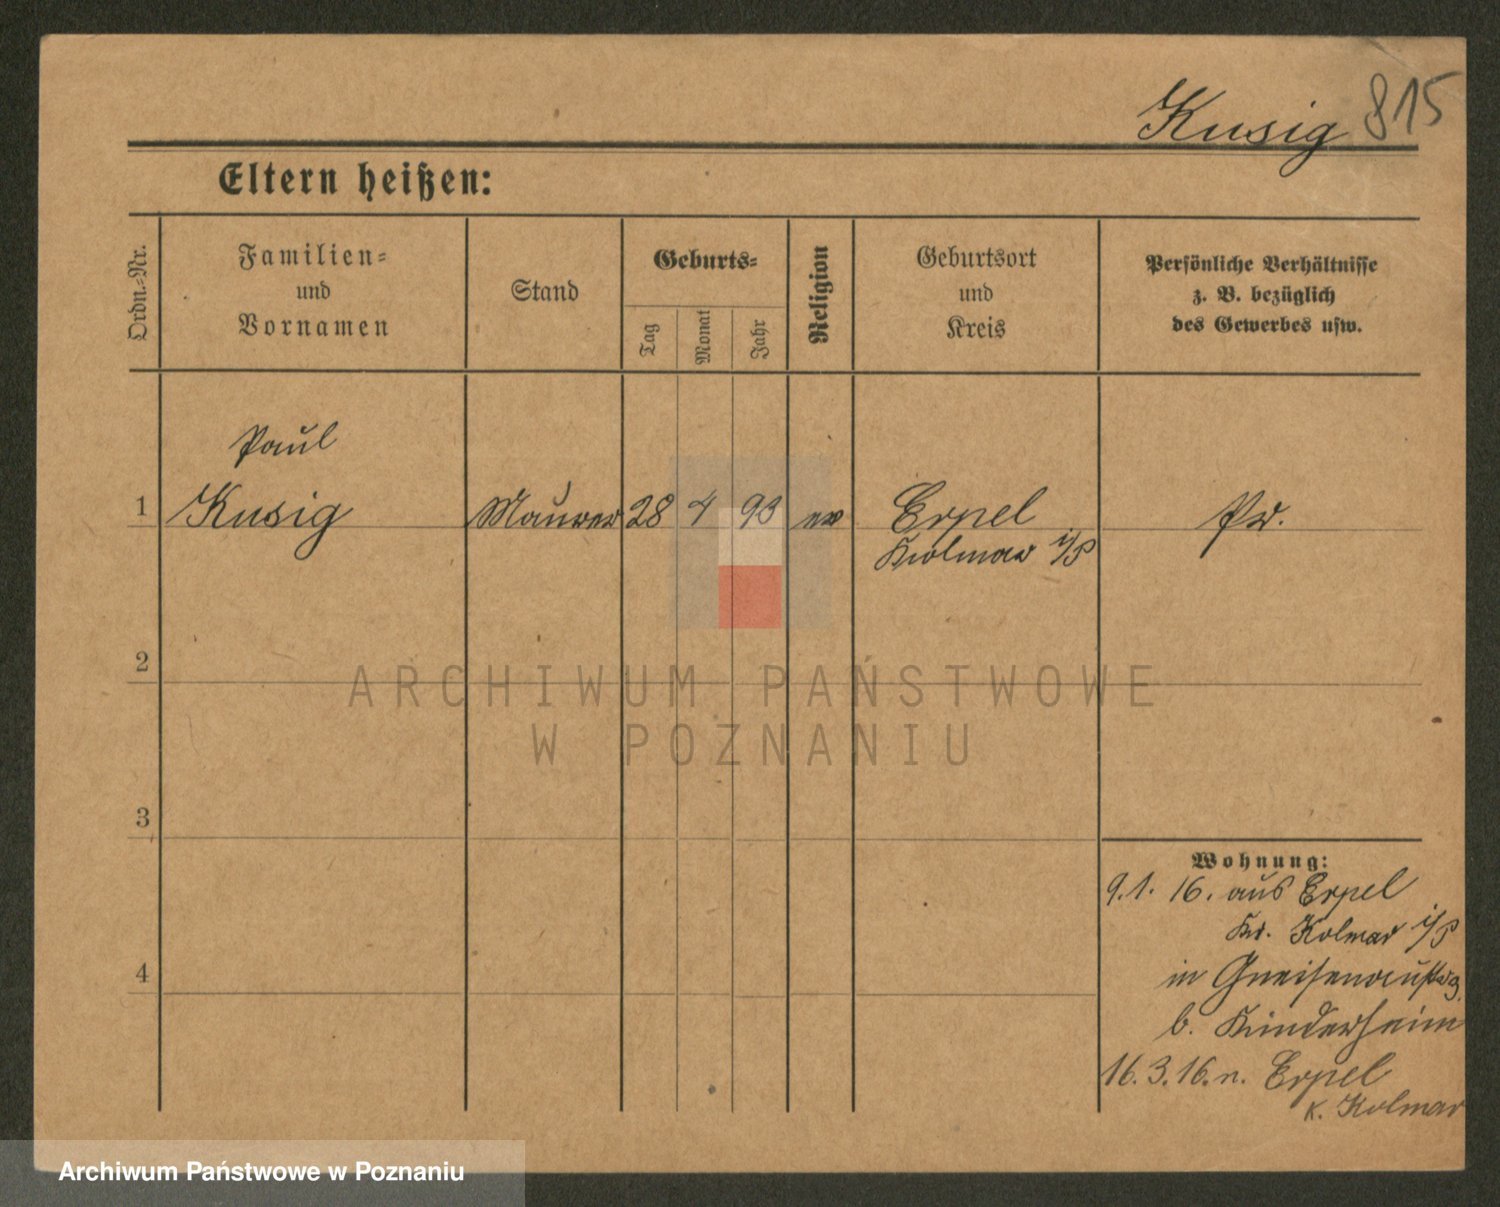 Kusig 815
Eltern heißen:
Ordn.-Nr.
Familien-
und
Vornamen
Stand
Geburts-
Tag
Monat
Jahr
Religion
Geburtsort
und
Kreis
Persönliche Verhältnisse
z. B. bezüglich
des Gewerbes usw.
Paul
1 Kusig Maurer 28 4 93 ev Erpel Pr.
Kolmar i/P
2
ARCHIWUM PAŃSTWOWE
W POZNANIU
3
Wohnung:
9.1. 16. aus Erpel
Kr. Kolmar i/P
4
in Gneisenaustr
b. Kinderheim
16.3.16. n. Erpel
K. Kolmar
Archiwum Państwowe w Poznaniu